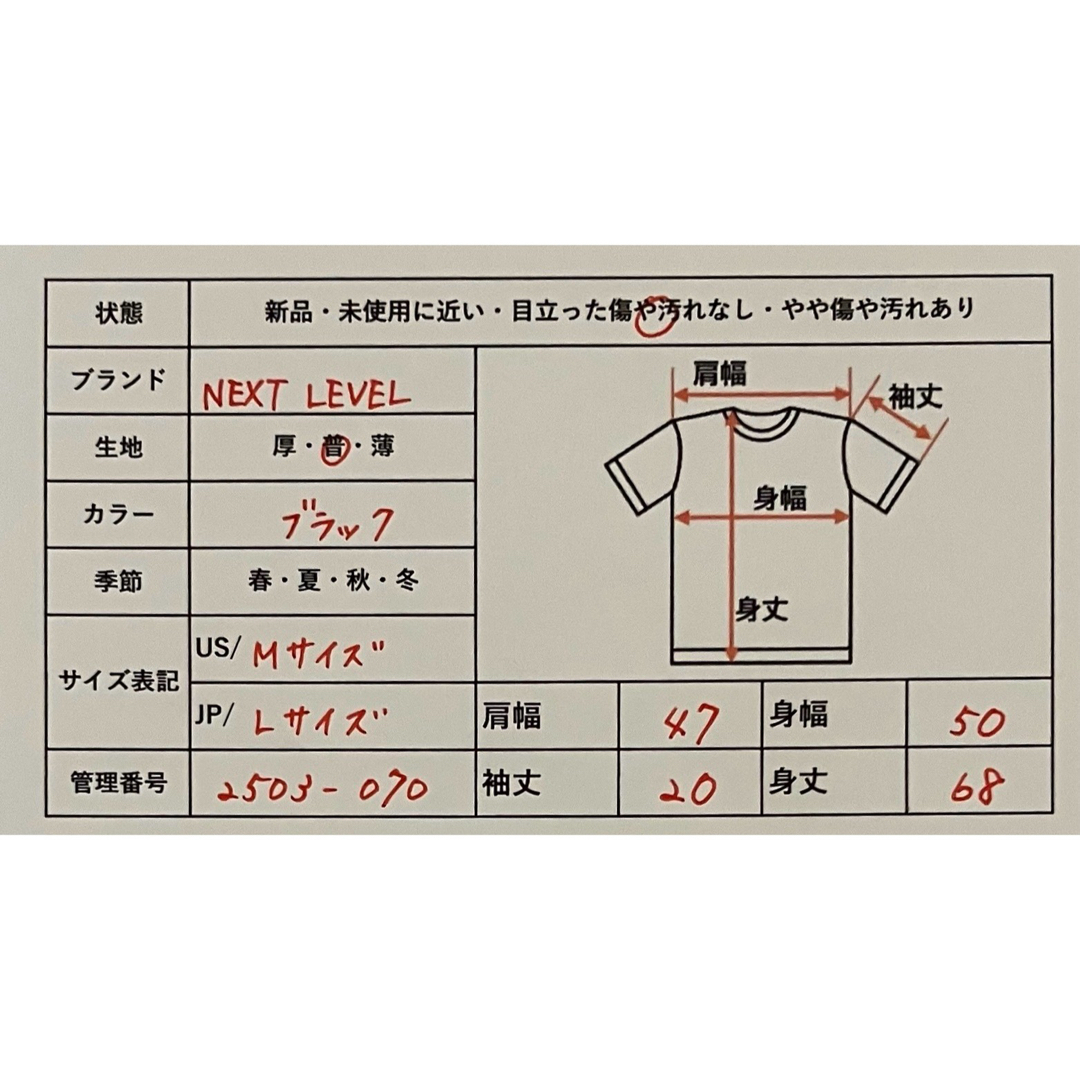 状態 新品・未使用に近い・目立った傷や汚れなし・やや傷や汚れあり
ブランド NEXT LEVEL
生地 厚・普・薄
カラー ブラック
季節 春・夏・秋・冬
サイズ表記
US/ Mサイズ
JP/ Lサイズ
管理番号 2503-070
肩幅
袖丈
身幅
身丈
肩幅 47 身幅 50
袖丈 20 身丈 68